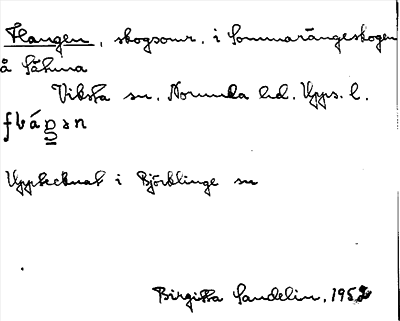 Flangen, skogsomr. i Sommarängeskogen
å Sähma
Viksta sn. Norunda hd. Upps. l.
Upptecknat i Björklinge sn
Birgitta Sandelin, 1952